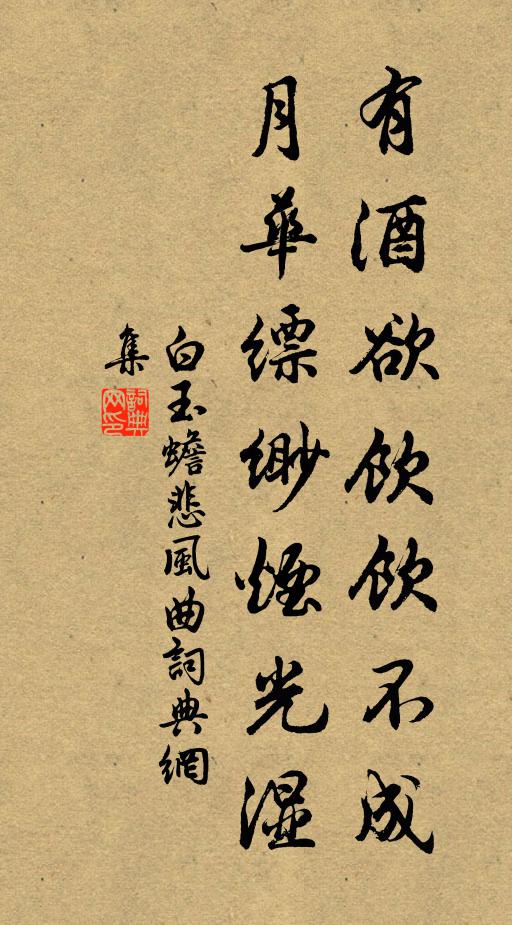 有酒欲飲飲不成
月華縹緲煙光濕
白玉蟾悲風曲詞典網
集
詞典網印